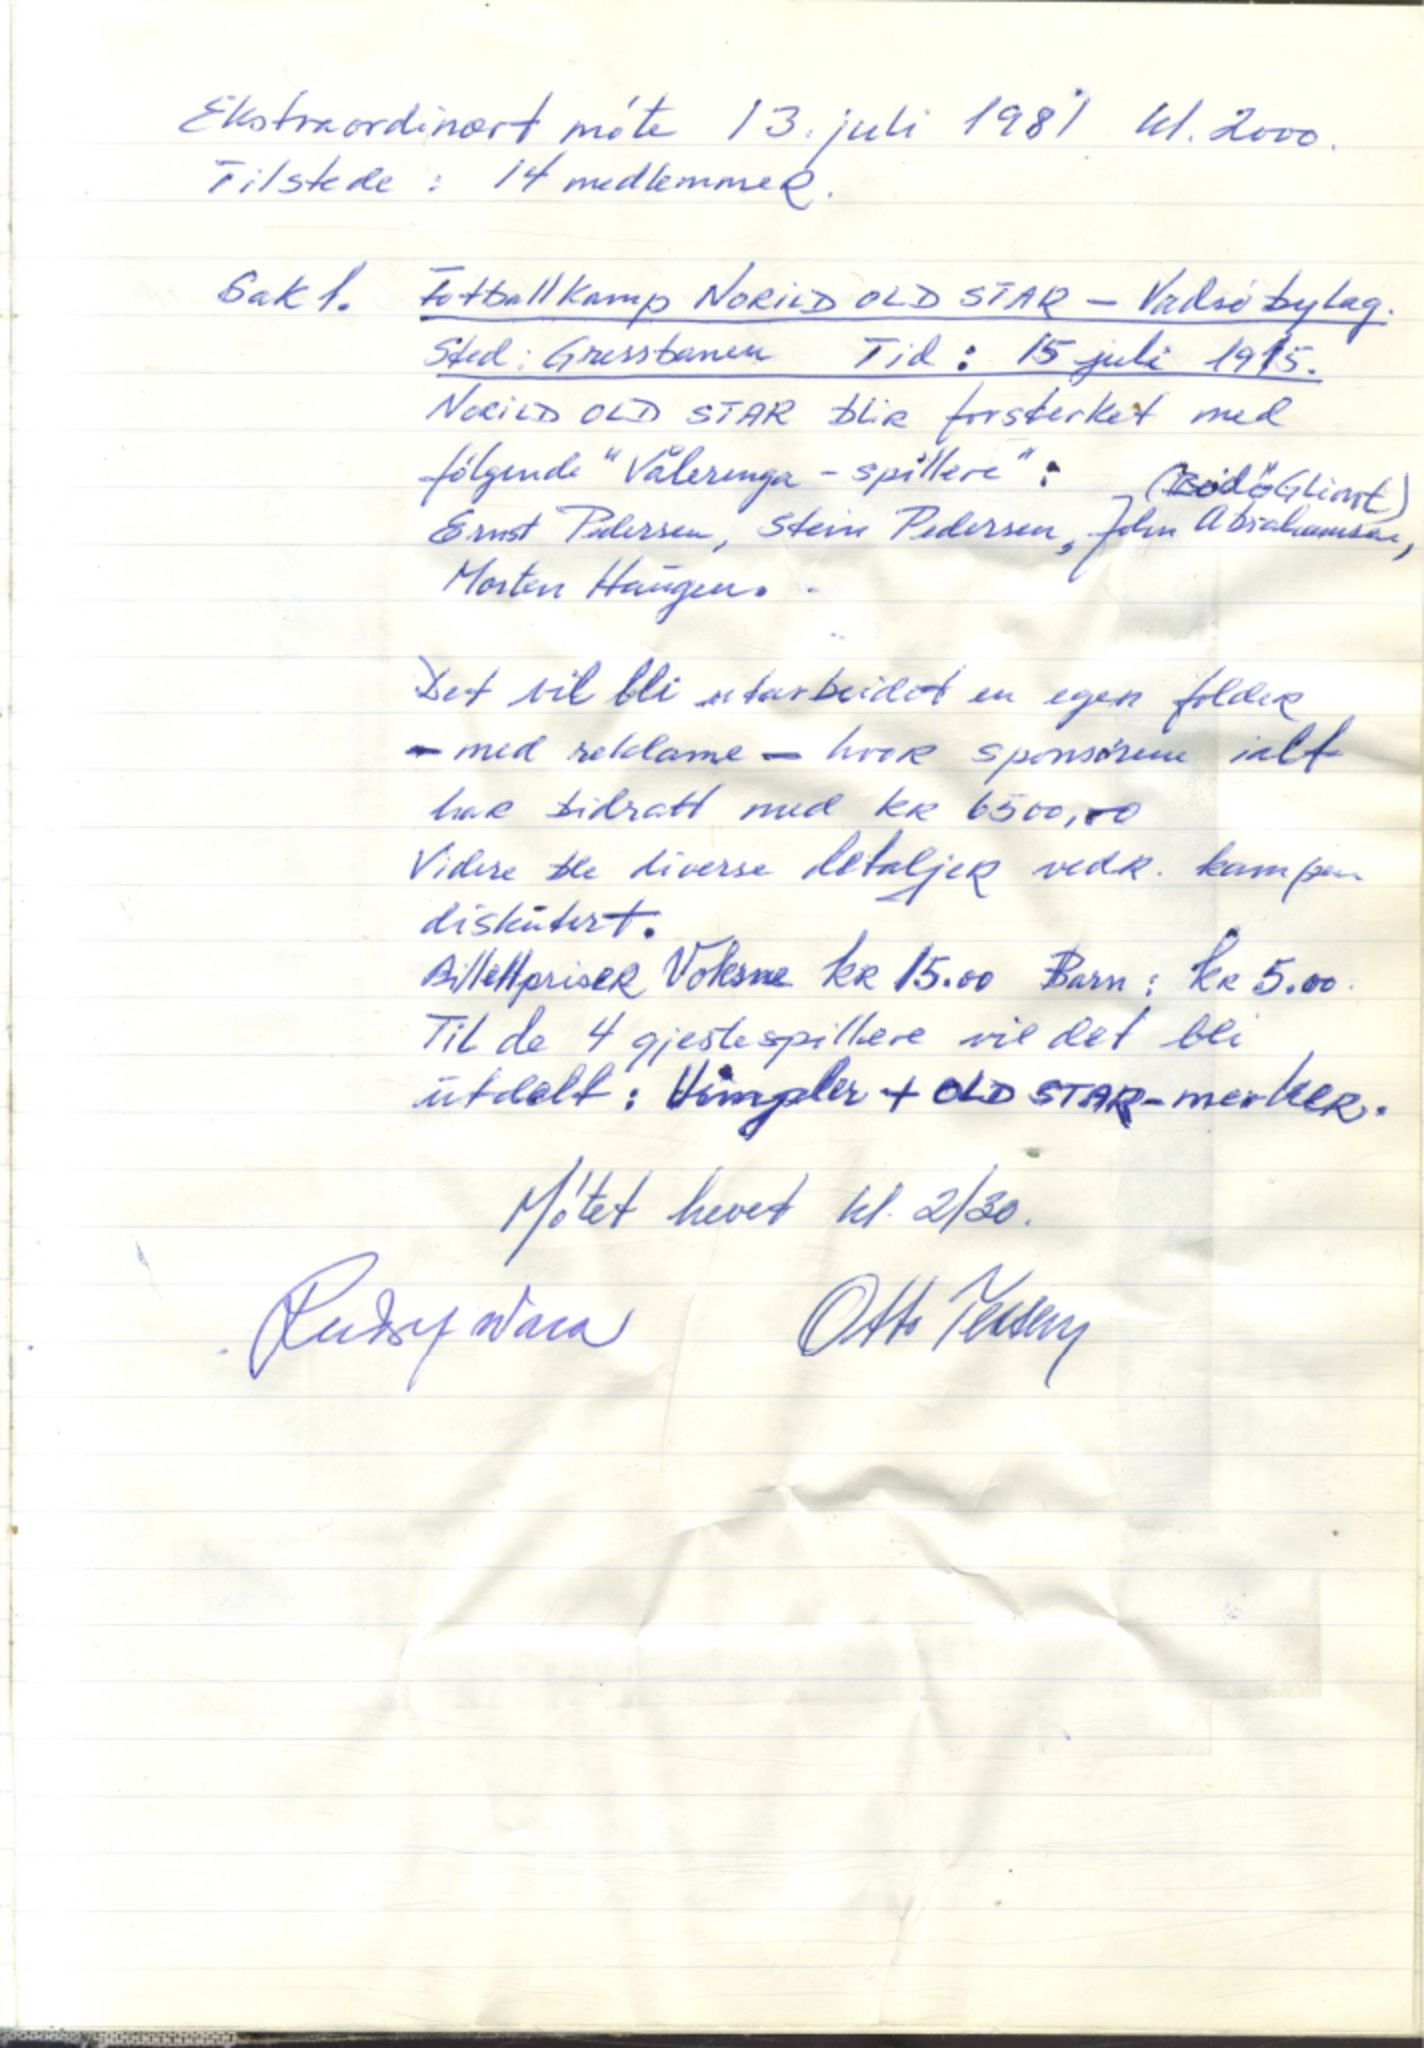 Ekstraordinært møte 13. juli 1981 kl. 2000.
Tilstede : 14 medlemmer.
Sak 1. Fotballkamp NORILD OLD STAR – Vadsø bylag.
Sted: Gressbanen Tid : 15 juli 1915.
NORILD OLD STAR blir forsterket med
følgende "Vålerenga - spillere" :
(Bodø Glimt)
Ernst Pedersen, Stein Pedersen, John Abrahamsen,
Morten Haugen.
Det vil bli utarbeidet en egen folder
- med reklame - hvor sponsorene ialt
har bidratt med kr 6500,00
Videre ble diverse detaljer vedr. kampen
diskutert.
Billettpriser Voksne kr 15.00 Barn : kr 5.00.
Til de 4 gjestespillere vil det bli
utdelt : Vimpler + OLD STAR-merker.
Møtet hevet kl. 2130.
Otto